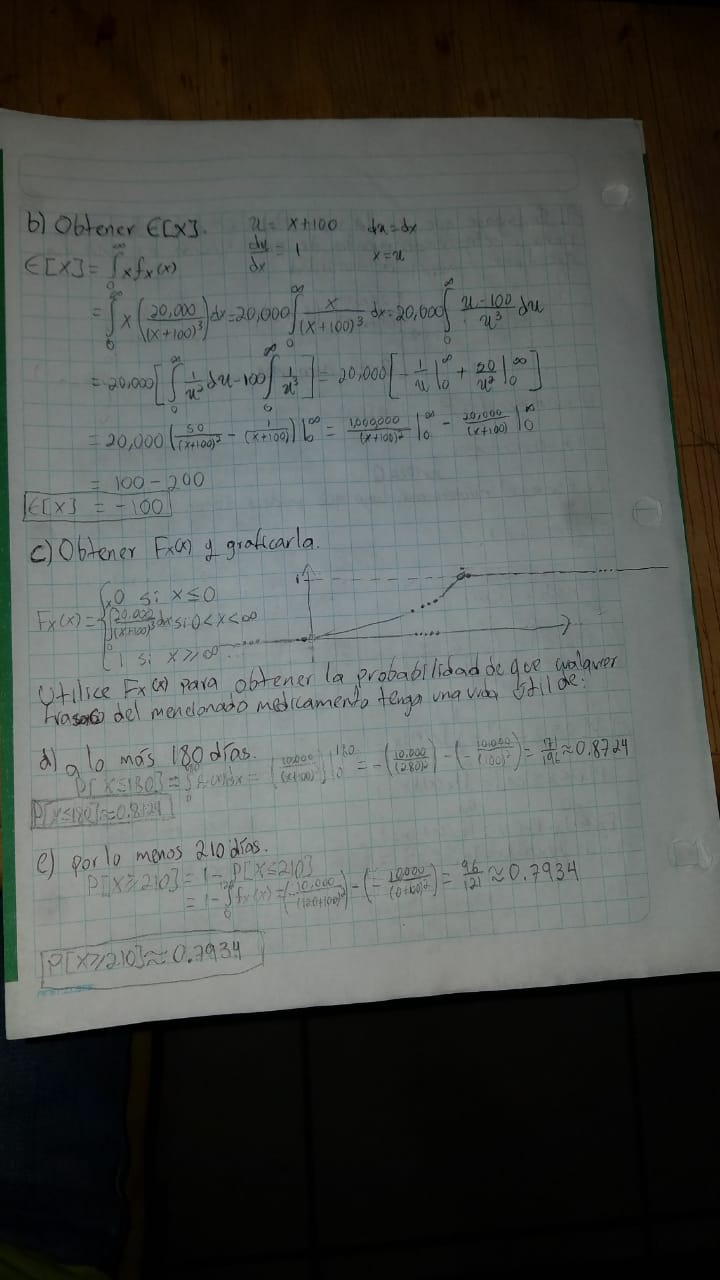 b) Obtener E[X]. u = x+100 du=dx
du/dx = 1 x=u
E[X] = ∫₀^∞ x fx(x)
= ∫₀^∞ x (20,000/(x+100)³) dx = 20,000 ∫₀^∞ x/(x+100)³ dx = 20,000 ∫₀^∞ (u-100)/u³ du
= 20,000 [∫₀^∞ 1/u² du - 100 ∫₀^∞ 1/u³] = 20,000 [-1/u |₀^∞ + 50/u² |₀^∞]
= 20,000 (50/(x+100)² - 1/(x+100)) |₀^∞ = 1,000,000/(x+100)² |₀^∞ - 20,000/(x+100) |₀^∞
= 100 - 200
E[X] = -100
c) Obtener Fx(x) y graficarla.
1
Fx(x) = { 0 si x≤0
∫ 20,000/(x+100)³ dx si 0<x<∞
1 si x≥∞
Utilice Fx(x) para obtener la probabilidad de que cualquier
frasco del mencionado medicamento tenga una vida útil de:
d) a lo más 180 días.
P[X≤180] = = |₀ = -(10,000/(280)²) - (-10,000/(100)²) = 171/196 ≈ 0.8724
P[X≤180] ≈
e) por lo menos 210 días.
P[X≥210] = 1 - P[X≤210]
= 1 - ∫₀^120 fx(x) = (-10,000/(120+100)²) - (-10,000/(0+100)²) = 96/121 ≈ 0.7934
P[X≥210] ≈ 0.7934